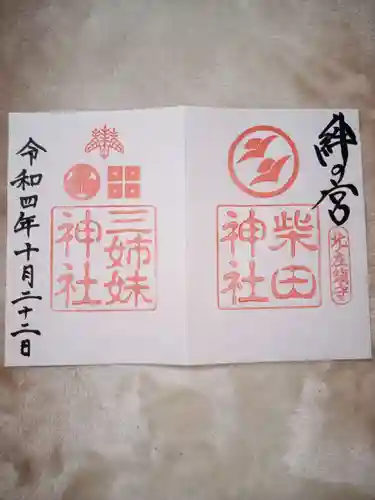 絆の宮
北之庄鎮守
柴田
神社
三姉妹
神社
令和四年十月二十二日